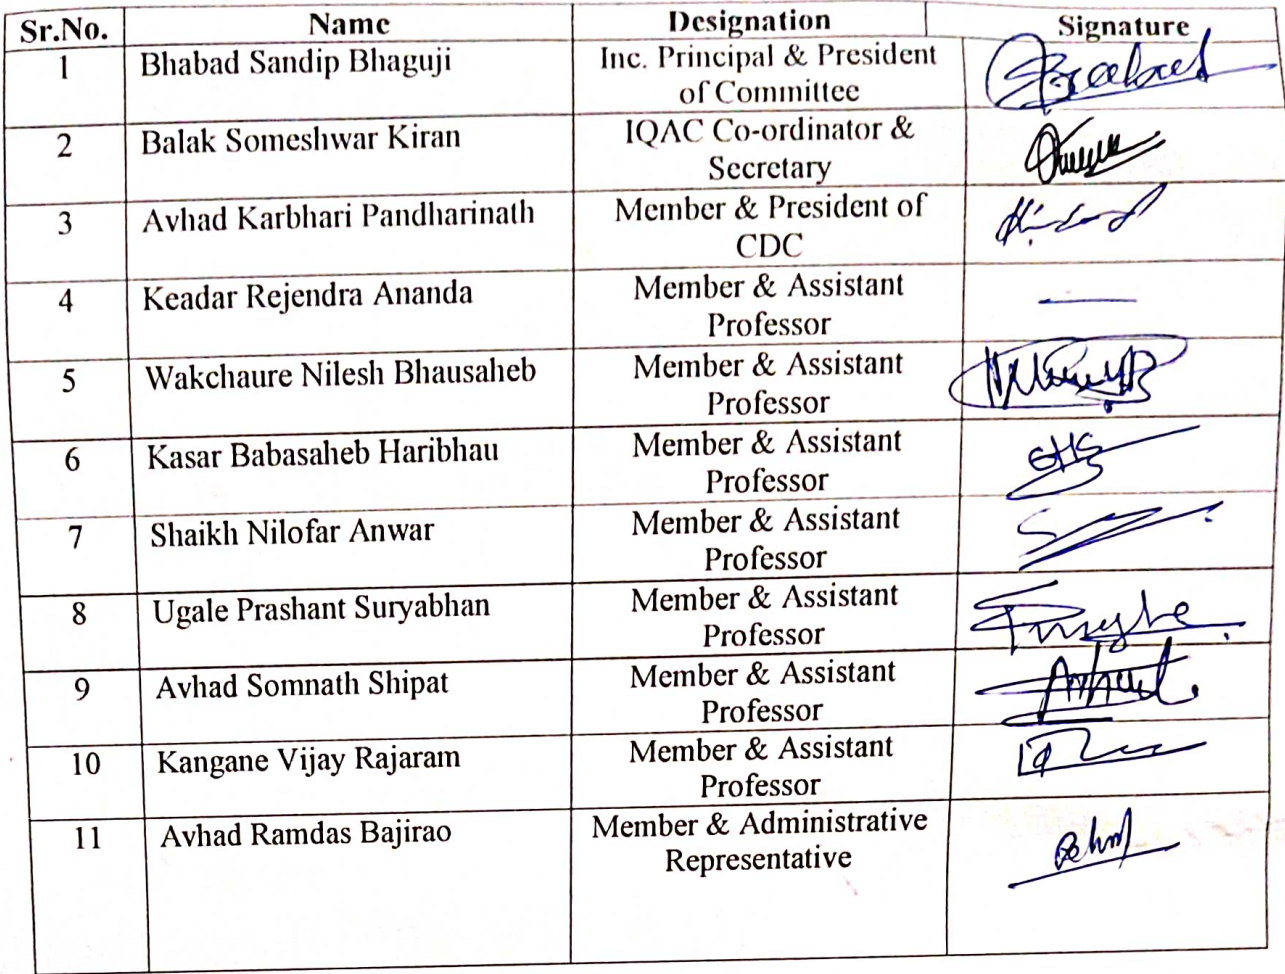 Sr.No. Name Designation Signature
1 Bhabad Sandip Bhaguji Inc. Principal & President
of Committee
2 Balak Someshwar Kiran IQAC Co-ordinator &
Secretary
3 Avhad Karbhari Pandharinath Member & President of
CDC
4 Keadar Rejendra Ananda Member & Assistant
Professor
5 Wakchaure Nilesh Bhausaheb Member & Assistant
Professor
6 Kasar Babasaheb Haribhau Member & Assistant
Professor
7 Shaikh Nilofar Anwar Member & Assistant
Professor
8 Ugale Prashant Suryabhan Member & Assistant
Professor
9 Avhad Somnath Shipat Member & Assistant
Professor
10 Kangane Vijay Rajaram Member & Assistant
Professor
11 Avhad Ramdas Bajirao Member & Administrative
Representative